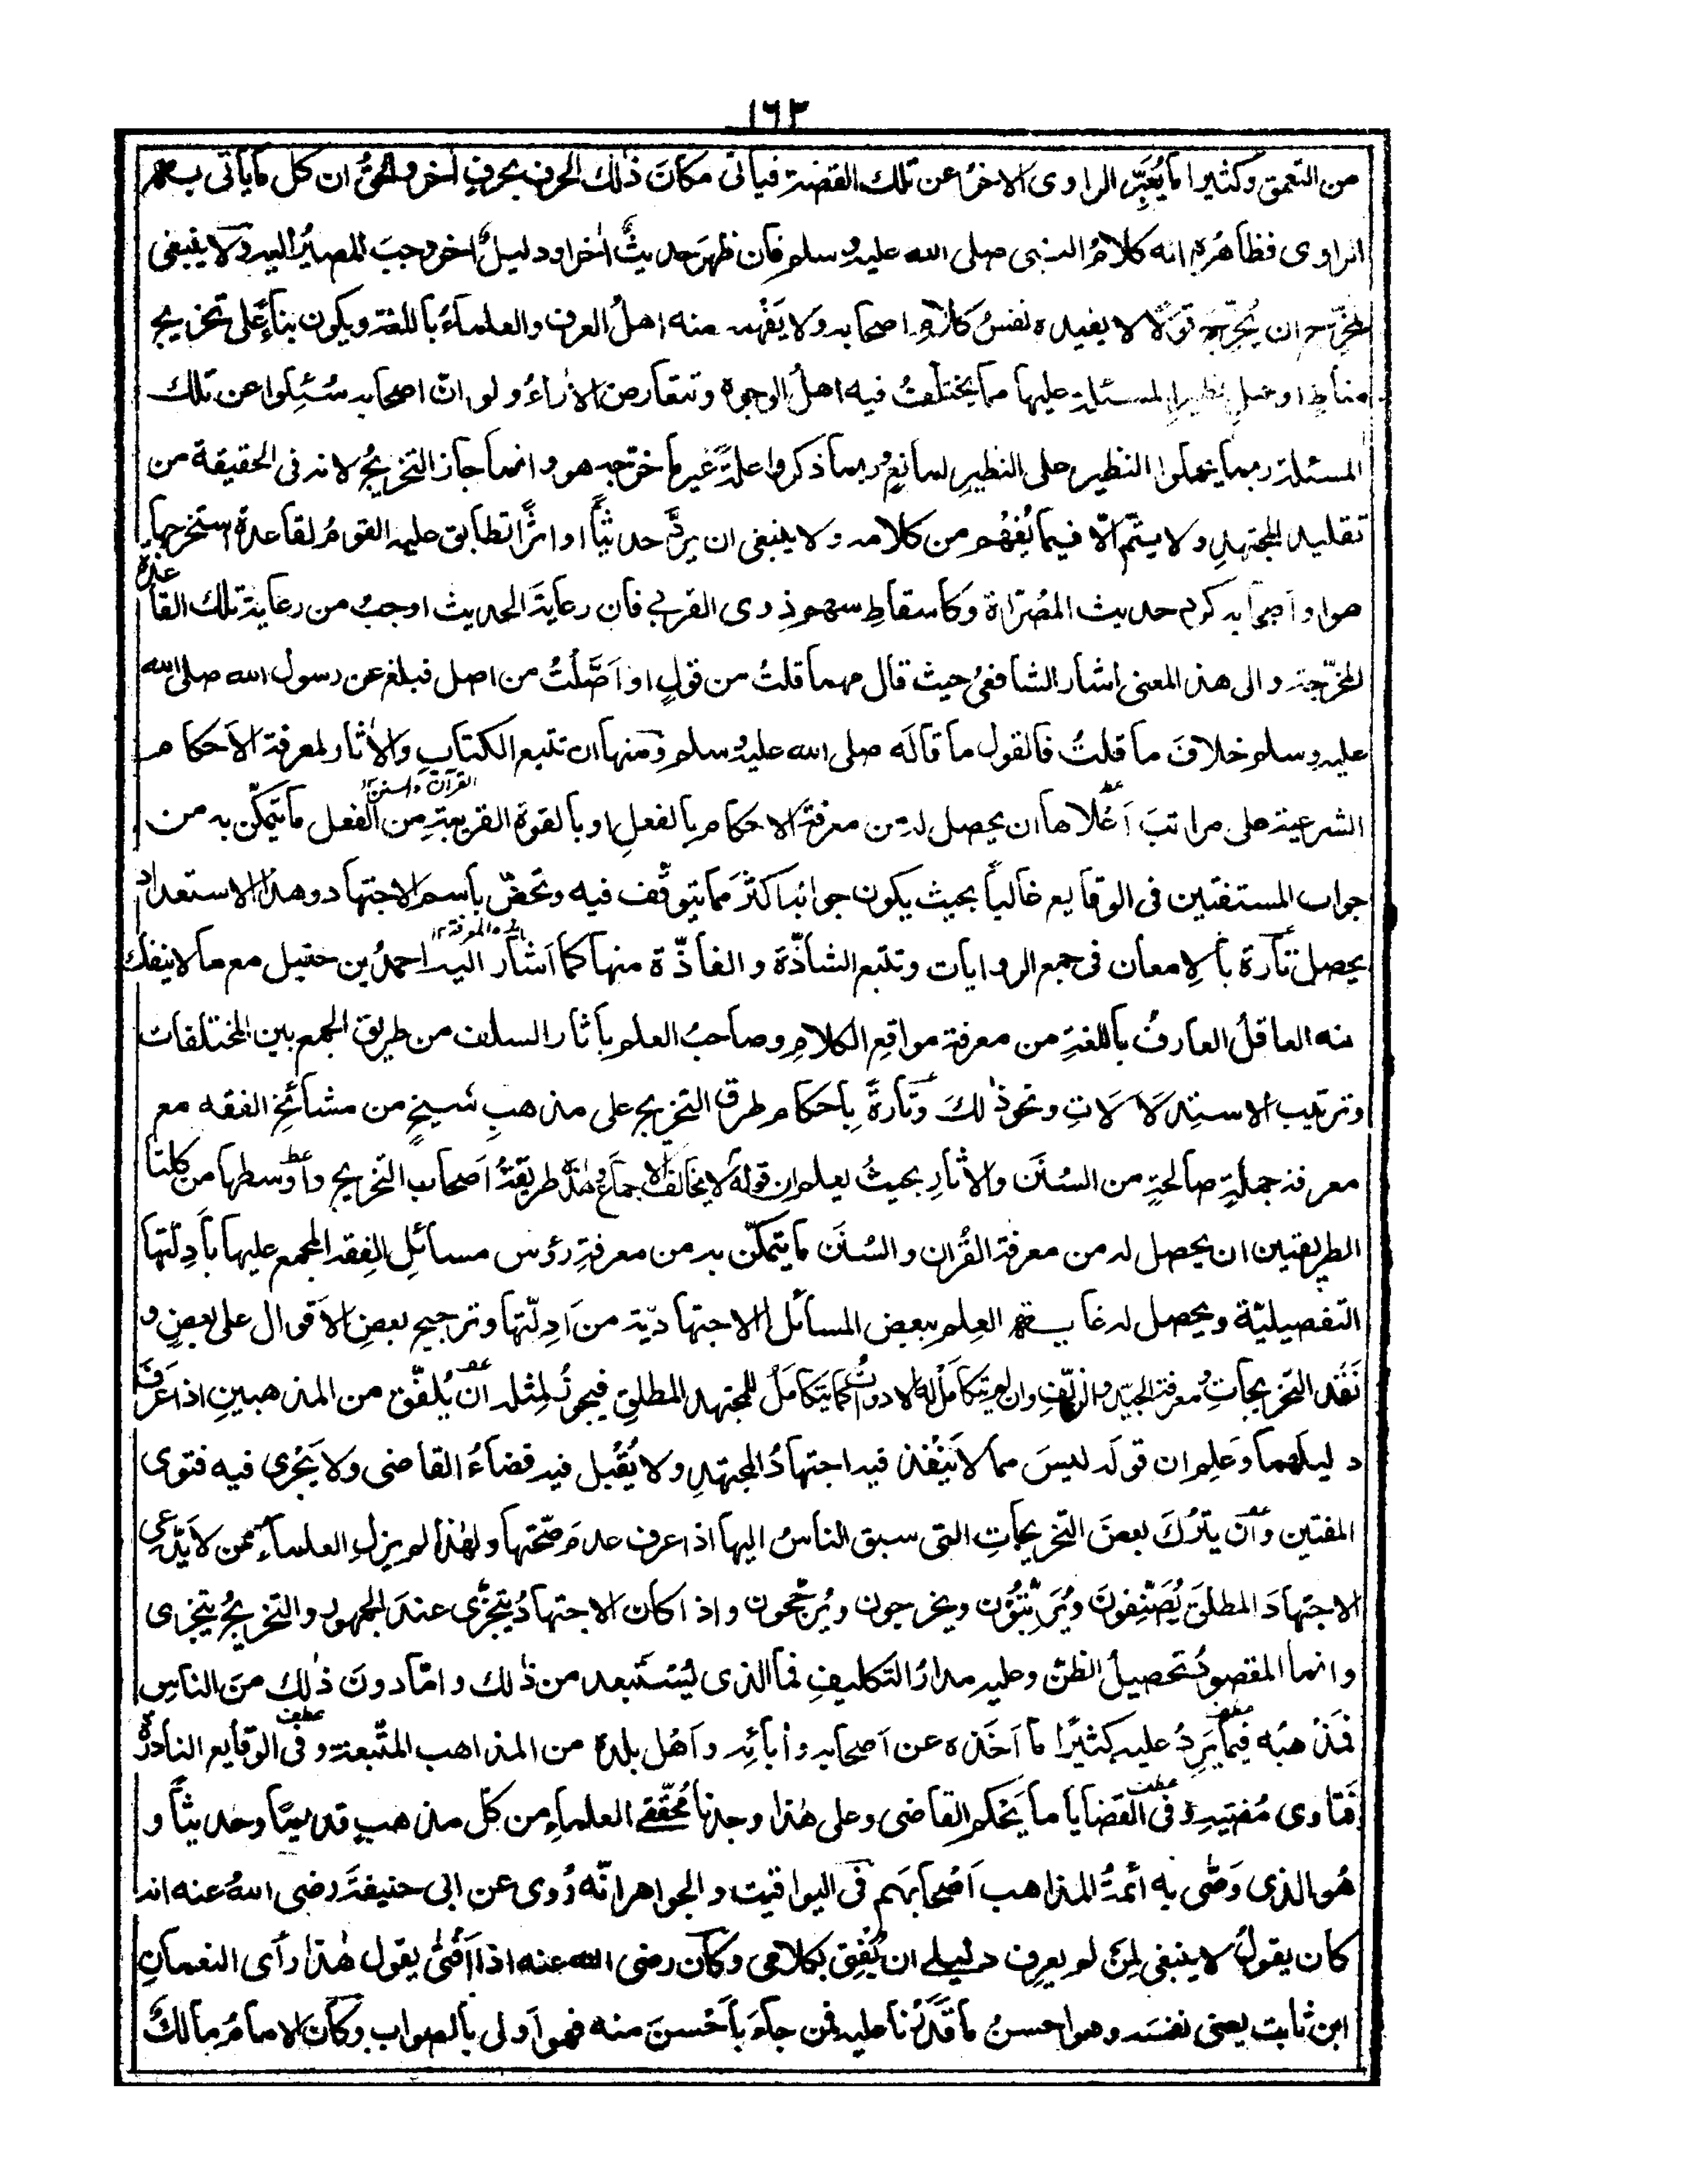 ١٦٣
من التعمق وكثيرا ما يُعَبِّر الراوى الاخرُ عن تلك القضة فيأتى مكانَ ذٰلك الحرف بحرفٍ اٰخر والحقُّ ان كل ما يأتى به
الراوى فظاهرُه انه كلامُ النبى صلى الله عليه وسلم فان ظهرَ حديثٌ اٰخر او دليلٌ اٰخر وجبَ المصيرُ اليه ولا ينبغى
لمخرّج ان يُخرّجَ قولًا لا يفيده نفسُ كلامِ اصحابه ولا يَفْهمه منه اهلُ العرف والعلماءُ باللغة ويكون بناءً على تخريج
مناطٍ او حملِ نظيرِ المسئلة عليها مما يختلفُ فيه اهلُ الوجوه وتتعارض الاٰراءُ ولو انّ اصحابه سُئِلوا عن تلك
المسئلة ربما يحملوا النظير على النظيرِ لمانعٍ وربما ذكروا علةً غيرَ ما خرّجه هو وانما جاز التخريجُ لانه فى الحقيقة من
تقليد المجتهدِ ولا يتمّ الّا فيما يُفْهَم من كلامه ولا ينبغى ان يردّ حديثًا او اثرًا تطابق عليه القومُ لقاعدة استخرجها
هو او اصحابه كردِّ حديث المصرّاة وكاسقاطِ سهمِ ذوى القربى فان رعايةَ الحديث اوجبُ من رعاية تلك القاعدة
المخرّجة والى هذا المعنى اشار الشافعىُ حيث قال مهما قلتُ من قولٍ او اَصَّلْتُ من اصل فبلغ عن رسول الله صلى الله
عليه وسلم خلافَ ما قلتُ فالقول ما قالَه صلى الله عليه وسلم ومنها ان تتبع الكتابِ والاٰثار لمعرفة الاَحكام
القرآن والسنن ١٢
الشرعية على مراتبَ اَعْلاها ان يحصل له من معرفة الاحكام بالفعلِ او بالقوة القريبة من الفعل ما يتمكّن به من
جواب المستفتين فى الوقايع غالبًا بحيث يكون جوابُه اكثرَ مما يتوقّف فيه وتخصّ باسم الاجتهاد وهذا الاستعداد
يحصل تارة بالاِمعان فى جمع الروايات وتتبع الشاذّة والفاذّة منها كما اَشار اليه احمدُ بن حنبل مع ما لا ينفك
منه العاقلُ العارفُ باللغةِ من معرفة مواقعِ الكلامِ وصاحبُ العلم باٰثار السلف من طريق الجمع بين المختلفات
وترتيب الاستدلالاتِ ونحو ذٰلكَ وتارةً بِاَحكام طرق التخريج على مذهبِ شيخٍ من مشائخ الفقه مع
معرفة جملةٍ صالحةٍ من السُنَن والاٰثارِ بحيثُ يعلم ان قولَه لا يخالف الاجماعَ وهٰذه طريقةُ اَصحاب التخريج واَوسطها من كلتا
الطريقتين ان يحصل له من معرفة القُران والسُنَن ما يتمكّن به من معرفةِ رؤس مسائلِ الفِقه المجمع عليها باَدِلّتها
التفصيليّة ويحصل له غاية العِلم ببعض المسائل الاجتهاديّة من اَدِلّتها وترجيح بعضِ الاَقوال على بعضٍ و
نَقْد التخريجاتِ ومعرفة الجيّد والزيّف وان لم يتكامل له الادوات كما يتكاملُ للمجتهد المطلقِ فيجوزُ لمِثله ان يُلفّق من المذهبينِ اذا عَرَفَ
دليلهما وَعَلِم ان قولَه ليسَ مما لا يَنْفذ فيه اجتهادُ المجتهدِ ولا يُقْبل فيه قضاءُ القاضى ولا يَجْرى فيه فتوى
المفتين وان يترُكَ بعضَ التخريجاتِ التى سبق الناسُ اليها اذا عرف عدمَ صحّتها ولهٰذا لم يزلِ العلماءُ ممن لا يَدّعى
الاجتهادَ المطلقَ يُصَنّفونَ ويُرَتّبُوْن ويخرجون ويُرجّحون واذا كان الاجتهادُ يتجزّى عندَ الجمهور والتخريجُ يتجزى
وانما المقصودُ تحصيلُ الظنّ وعليه مدارُ التكليفِ فما الذى يُسْتَبعد من ذٰلك وامّا دونَ ذٰلك منَ الناسِ
فمَذْهبُه فيما يَرِدُ عليه كثيرًا ما اَخَذه عن اَصحابه واٰبائِه واَهل بلده من المذاهب المتّبعة وفى الوقايع النادرة
فَتاوى مُفتيه وفى القضايا ما يَحْكم القاضى وعلى هٰذا وجدنا مُحقّقى العلماءِ من كلّ مذهبٍ قديمًا وحديثًا و
هُو الذى وَصّٰى به أئمةُ المذاهب اَصْحابَهم فى اليواقيت والجواهر انّه رُوى عن ابى حنيفةَ رضى اللهُ عنه انه
كان يقولُ لا ينبغى لِمَن لم يعرف دليلى ان يُفْتِىَ بكلامى وكان رضى الله عنه اذا اَفْتٰى يقول هٰذا رأى النعمانِ
ابن ثابت يعنى نفسَه وهو احسنُ ما قدَرْنا عليه فمن جاءَ باَحْسنَ منه فهو اَولى بالصواب وكان الامامُ مالكٌ